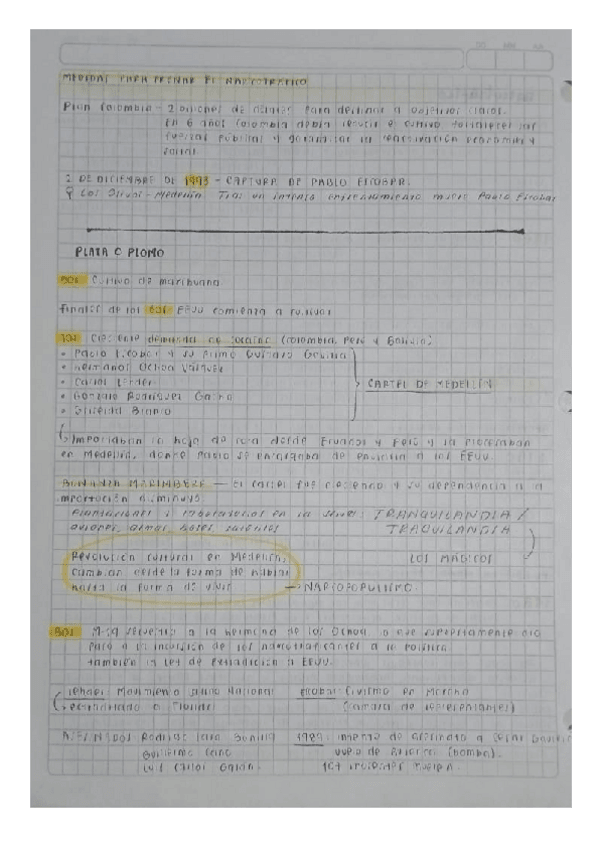 MEDIDAS PARA FRENAR EL NARCOTRÁFICO
Plan Colombia - 2 billones de dólares para destinar a objetivos claros.
En 6 años Colombia debía reducir el cultivo fortalecer las
fuerzas públicas y garantizar la reactivación económica y
social.
2 DE DICIEMBRE DE 1993 - CAPTURA DE PABLO ESCOBAR.
Los Olivos - Medellín Tras un intenso enfrentamiento muere Pablo Escobar
PLATA O PLOMO
50s Cultivo de marihuana
Finales de los 60s EEUU comienza a
70s Creciente demanda de cocaína (Colombia, Perú y Bolivia)
• Pablo Escobar y su primo Gustavo Gaviria
• Hermanos Ochoa Vásquez
• Carlos Lehder
• Gonzalo Rodríguez Gacha
• Griselda Blanco
CARTEL DE MEDELLÍN
Importaban la hoja de coca desde Ecuador y Perú y la procesaban
en Medellín, donde Pablo se encargaba de enviarla a los EEUU.
BONANZA MARIMBERA — El cartel fue creciendo y su dependencia a la
importación disminuyó
Plantaciones y laboratorios en la selva: TRANQUILANDIA /
aviones, armas, botes, satélites
TRAQUILANDIA
LOS MÁGICOS
Revolución cultural en Medellín,
cambian desde la forma de hablar
hasta la forma de vivir → NARCOPOPULISMO.
80s M-19 secuestra a la hermana de los Ochoa lo que
paso a la incursión de los narcotraficantes a la política
también la Ley de Extradición a EEUU.
Lehder: Movimiento Latino Nacional
extraditado a Florida
Escobar: Civilismo en Marcha
(Cámara de representantes)
ASESINADOS Rodrigo Lara Bonilla
Guillermo Cano
Luis Carlos Galán.
1989: intento de asesinato a César Gaviria
vuelo de Avianca (bomba).
107